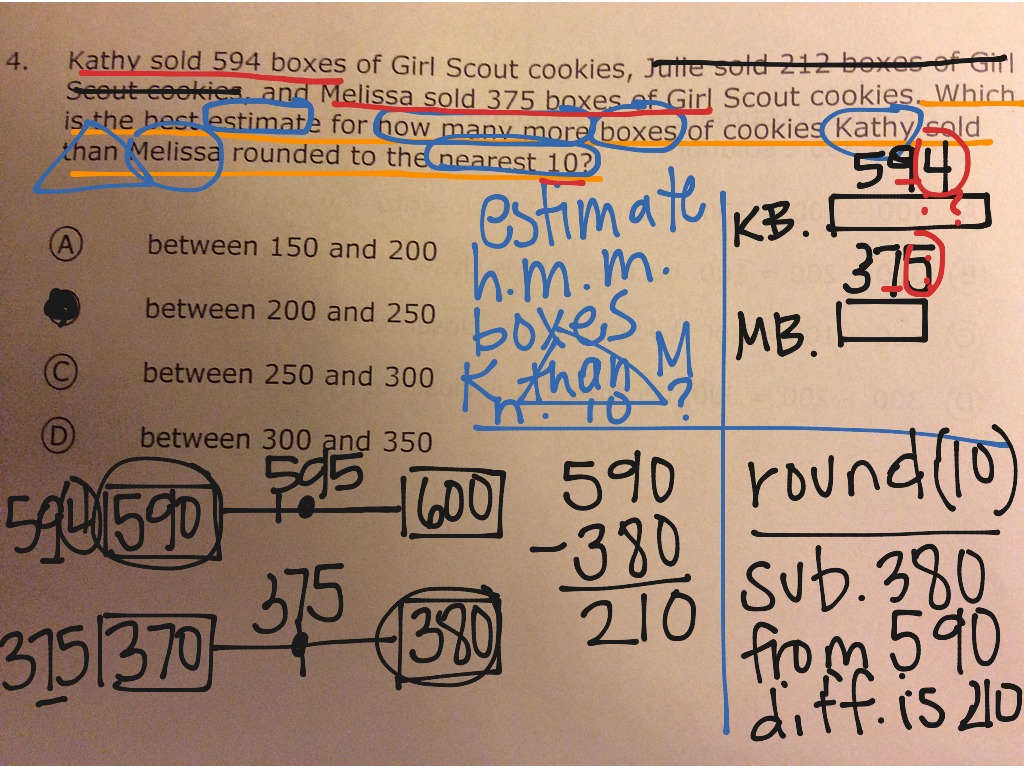 4. Kathy sold 594 boxes of Girl Scout cookies, Julie sold 212 boxes of Girl
Scout cookies, and Melissa sold 375 boxes of Girl Scout cookies. Which
is the best estimate for how many more boxes of cookies Kathy sold
than Melissa rounded to the nearest 10?
A between 150 and 200
between 200 and 250
C between 250 and 300
D between 300 and 350
estimate
h.m.m.
boxes
K than M
n. 10 ?
594
KB. ?
375
MB.
595
594 590 600
375
375 370 380
590
-380
210
round (10)
sub. 380
from 590
diff. is 210